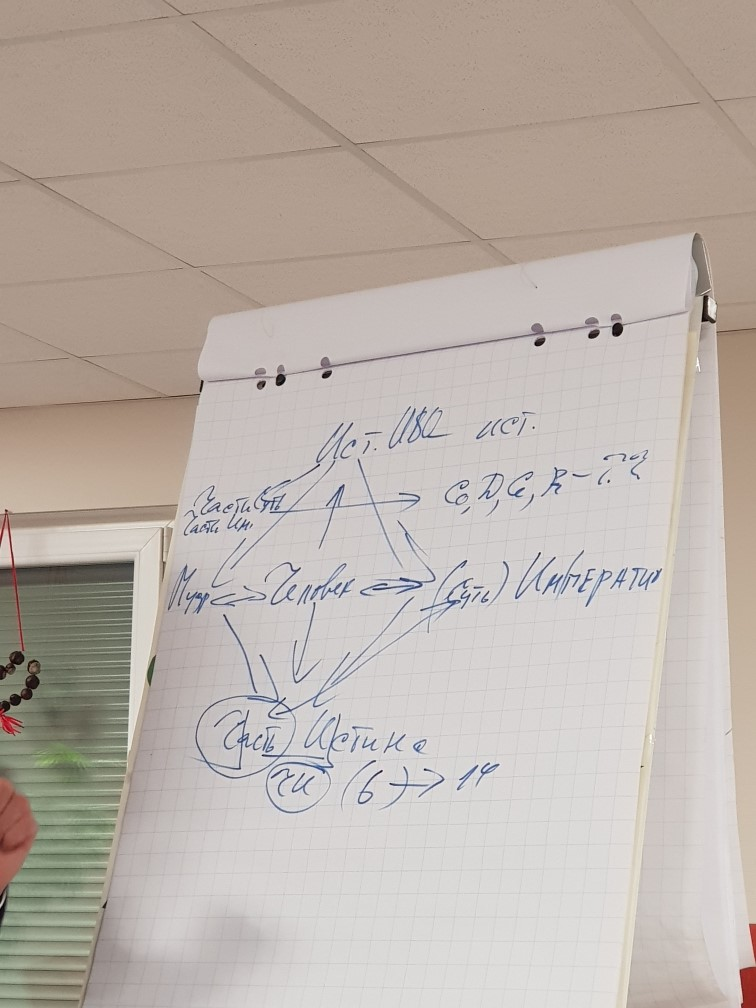 Ист. ИВО ист.
Части Суть
Части Им.
С, D, С, R - ??
Мудр Человек (Суть) Императив
Часть Истина
ЧИ (6) → 14